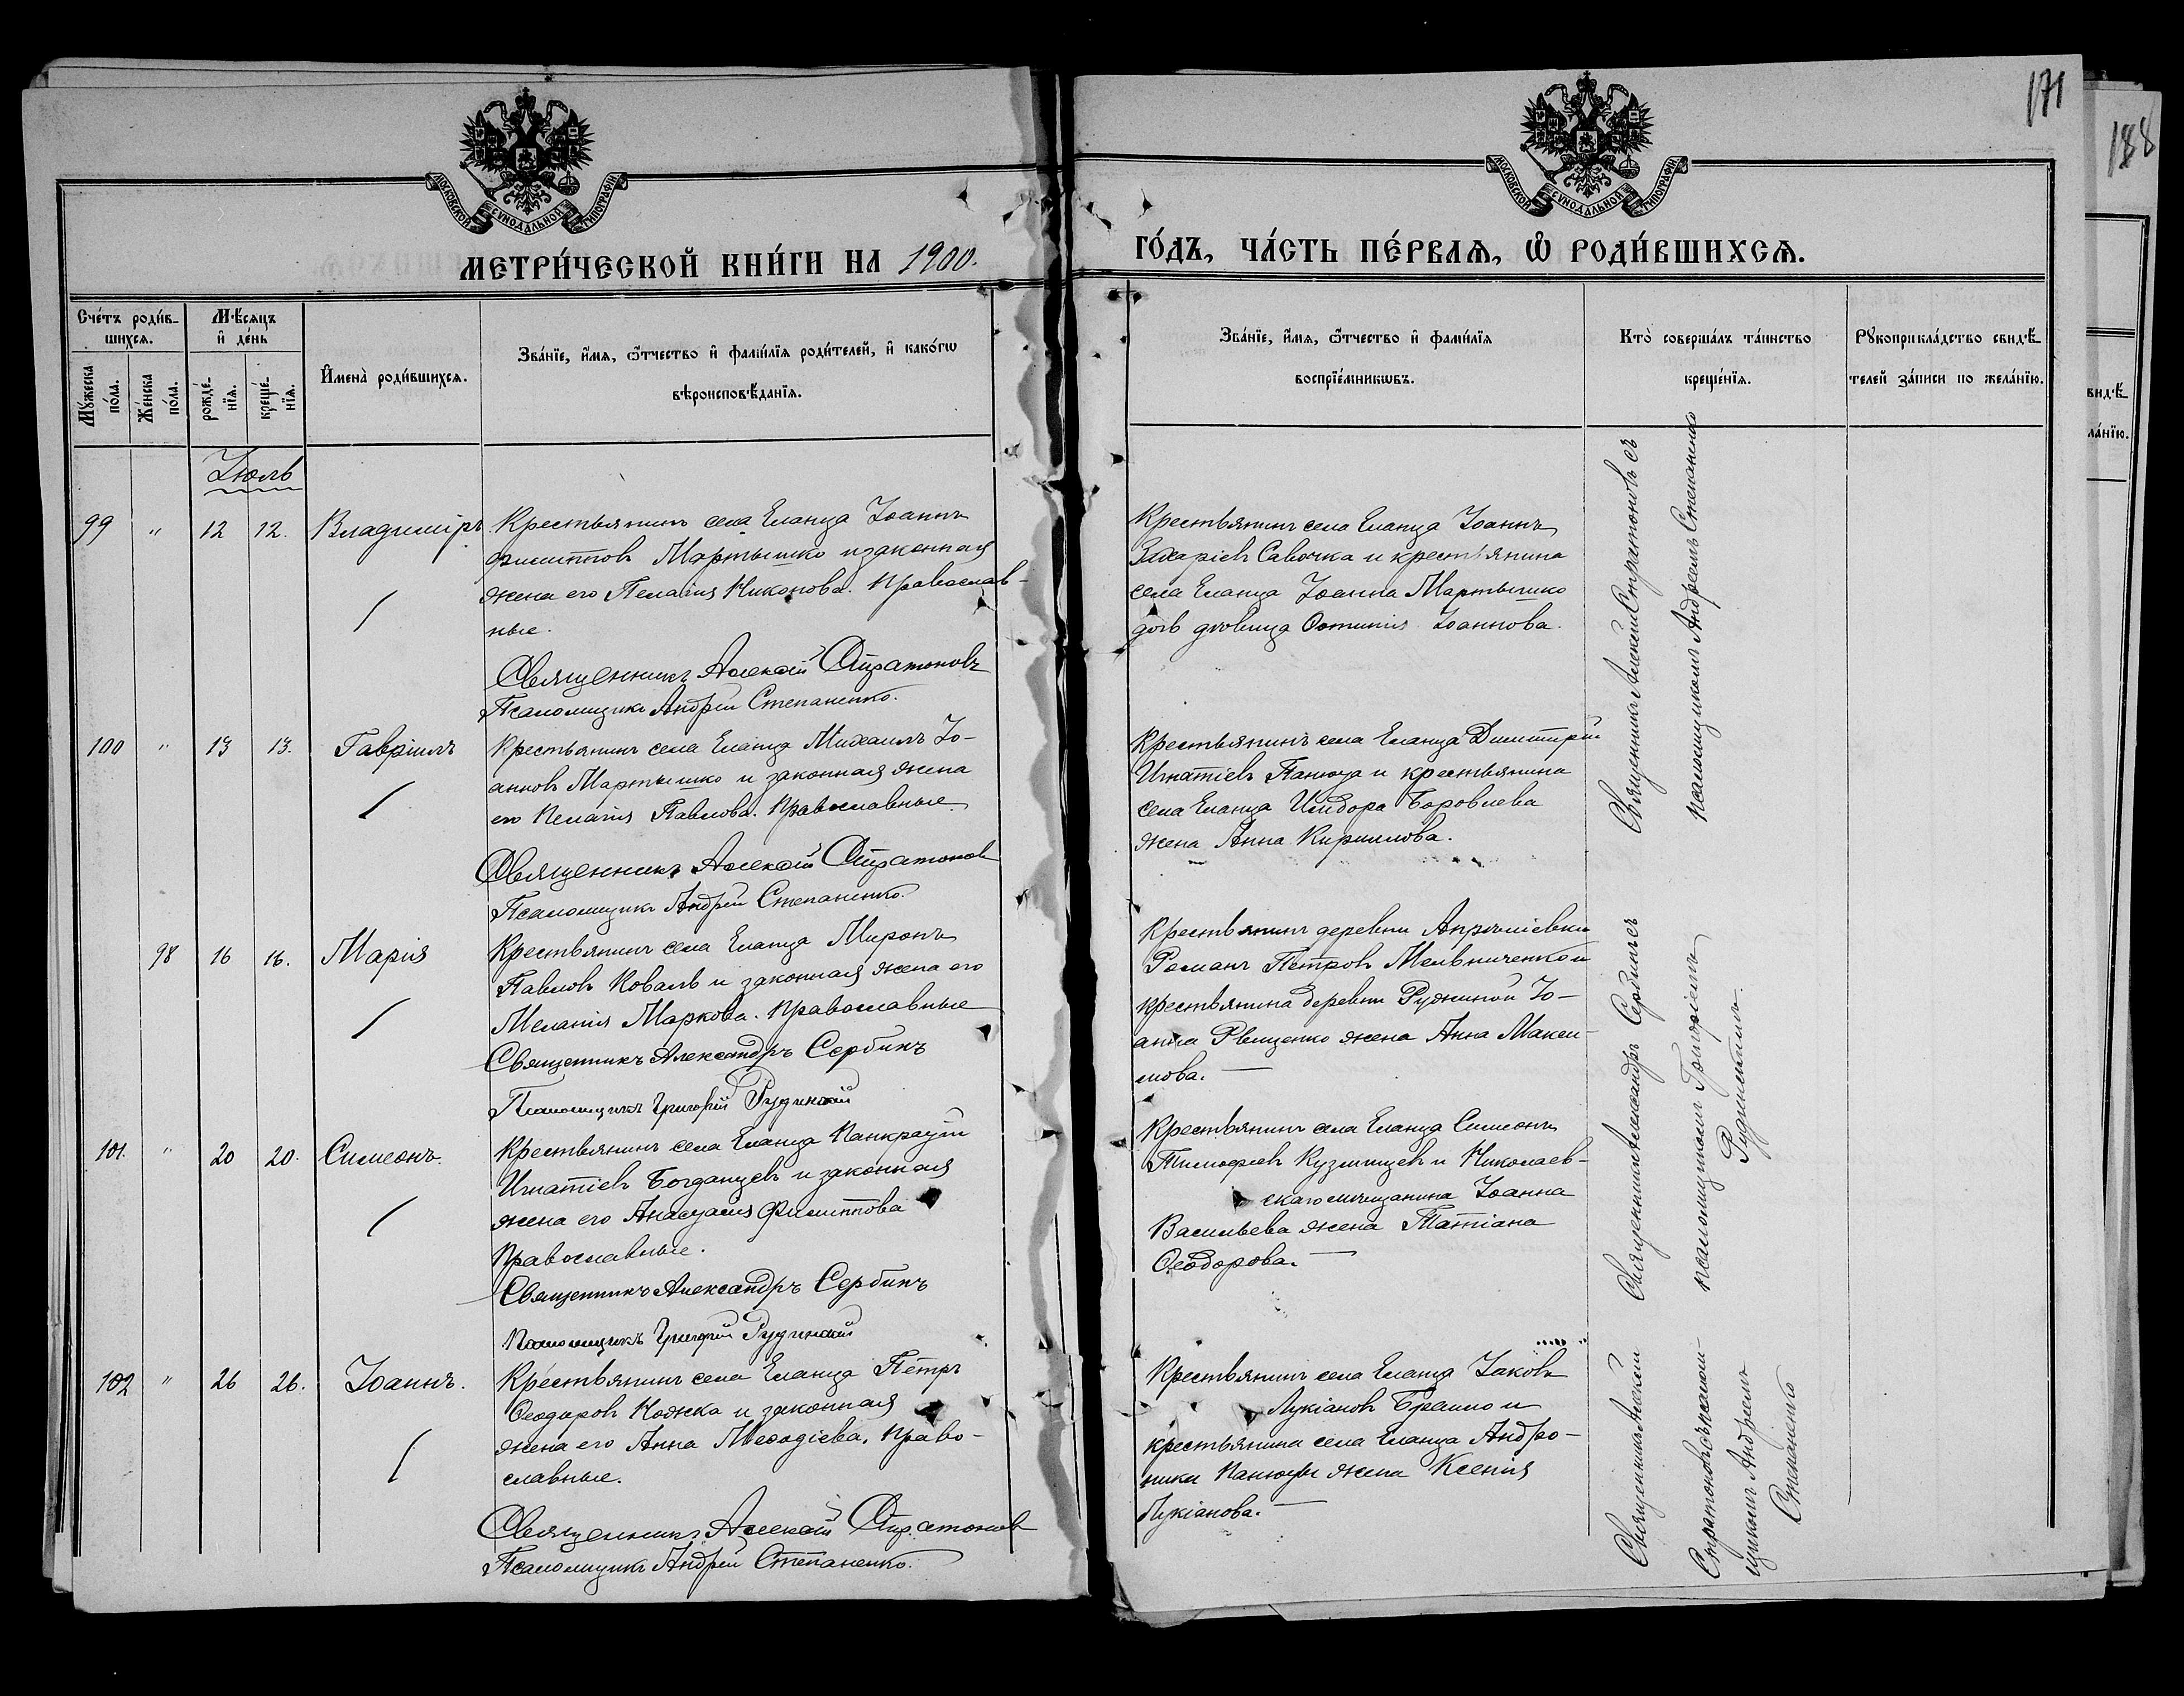 171
188
МОСКОВСКОЙ СѴНОДАЛЬНОЙ ТИПОГРАФІИ
МОСКОВСКОЙ СѴНОДАЛЬНОЙ ТИПОГРАФІИ
МЕТРИ́ЧЕСКОЙ КНИ́ГИ НА 1900.
ГО́ДЪ, ЧА́СТЬ ПЕ́РВАѦ, Ѡ҆ РОДИ́ВШИХСѦ.
Сче́тъ роди́в-
шихсѧ.
Мꙋ́жеска
по́ла.
Же́нска
по́ла.
Мѣ́сѧцъ
и҆ де́нь
рожде́-
нїѧ.
креще́-
нїѧ.
И҆мена̀ роди́вшихсѧ.
Зва́нїе, и҆́мѧ, ѻ҆́тчество и҆ фами́лїѧ роди́телей, и҆ како́гѡ
вѣроисповѣ́данїѧ.
Зва́нїе, и҆́мѧ, ѻ҆́тчество и҆ фами́лїѧ
воспрїе́мникѡвъ.
Кто̀ соверша́лъ та́инство
креще́нїѧ.
Рꙋкоприкла́дство свидѣ́-
телей за́писи по жела́нїю.
видѣ́-
ла́нїю.
Іюль
99 " 12 12. Владиміръ
Крестьянинъ села Еланца Іоаннъ
Филипповъ Мартышко и законная
жена его Пелагія Никонова. Православ-
ные.
Священникъ Алексій Стратоновъ
Псаломщикъ Андрей Степаненко.
Крестьянинъ села Еланца Іоаннъ
Захаріевъ Савочка и крестьянина
села Еланца Іоанна Мартышко
дочь дѣвица Іоаннова.
Священникъ Алексій Стратоновъ съ
псаломщикомъ Андреемъ Степаненко
100 " 13 13. Гавріилъ
Крестьянинъ села Еланца Михаилъ Іо-
анновъ Мартышко и законная жена
его Пелагія Павлова. Православные
Священникъ Алексій Стратоновъ
Псаломщикъ Андрей Степаненко.
Крестьянинъ села Еланца Димитрій
Игнатіевъ Панюта и крестьянина
села Еланца Исидора Боровлева
жена Анна Кириллова.
98 16 16. Марія
Крестьянинъ села Еланца Миронъ
Павловъ Коваль и законная жена его
Меланія Маркова. Православные
Священникъ Александръ Сербинъ
Псаломщикъ Григорій Рудинскій
Крестьянинъ деревни
Романъ Петровъ Мельниченко и
крестьянина деревни Іо-
анна жена Анна Макси-
мова.
Священникъ Александръ Сербинъ съ
псаломщикомъ Григоріемъ
Рудинскимъ.
101. " 20 20. Симеонъ.
Крестьянинъ села Еланца Панкратій
Игнатіевъ Богданцевъ и законная
жена его Анастасія Филиппова
Православные.
Священникъ Александръ Сербинъ
Псаломщикъ Григорій Рудинскій
Крестьянинъ села Еланца Симеонъ
Тимофеевъ и Николаев-
скаго мѣщанина Іоанна
Васильева жена Татіана
Ѳеодорова.
102 " 26 26. Іоаннъ.
Крестьянинъ села Еланца Петръ
Ѳеодоровъ и законная
жена его Анна Меѳодіева. Право-
славные.
Священникъ Алексій Стратоновъ
Псаломщикъ Андрей Степаненко.
Крестьянинъ села Еланца Іаковъ
Лукіановъ и
крестьянина села Еланца Андро-
ника Панюты жена Ксенія
Лукіанова.
Священникъ Алексій
Стратоновъ съ псалом-
щикомъ Андреемъ
Степаненко